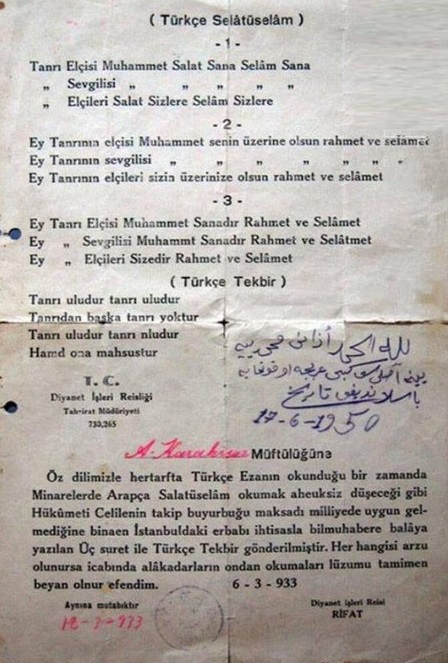 ( Türkçe Selâtüselâm )
- 1 -
Tanrı Elçisi Muhammet Salat Sana Selâm Sana
„ Sevgilisi „ „ „ „ „
„ Elçileri Salat Sizlere Selâm Sizlere
- 2 -
Ey Tanrının elçisi Muhammet senin üzerine olsun rahmet ve selâmet
Ey Tanrının sevgilisi „ „ „ „ „ „ „
Ey Tanrının elçileri sizin üzerinize olsun rahmet ve selâmet
- 3 -
Ey Tanrı Elçisi Muhammet Sanadır Rahmet ve Selâmet
Ey „ Sevgilisi Muhammt Sanadır Rahmet ve Selâtmet
Ey „ Elçileri Sizedir Rahmet ve Selâmet
( Türkçe Tekbir )
Tanrı uludur tanrı uludur
Tanrıdan başka tanrı yoktur
Tanrı uludur tanrı nludur
Hamd ona mahsustur
لله الحمد أذان محمديه
يينه اصلى كبى عربجه اوقونمايه
باشلانديغى تاريخ
17-6-1950
T. C.
Diyanet İşleri Reisliği
Tahrirat Müdüriyeti
730,265
A. Karahisar Müftülüğüne
Öz dilimizle hertarfta Türkçe Ezanın okunduğu bir zamanda
Minarelerde Arapça Salatüselâm okumak aheuksiz düşeceği gibi
Hükûmeti Celilenin takip buyurbuğu maksadı milliyede uygun gel-
mediğine binaen İstanbuldaki erbabı ihtisasla bilmuhabere balâya
yazılan Üç suret ile Türkçe Tekbir gönderilmiştir. Her hangisi arzu
olunursa icabında alâkadarların ondan okumaları lüzumu tamimen
beyan olnur efendim. 6 - 3 - 933
Aynına mutabıktır
12-3-933
Diyanet işleri Reisi
RİFAT